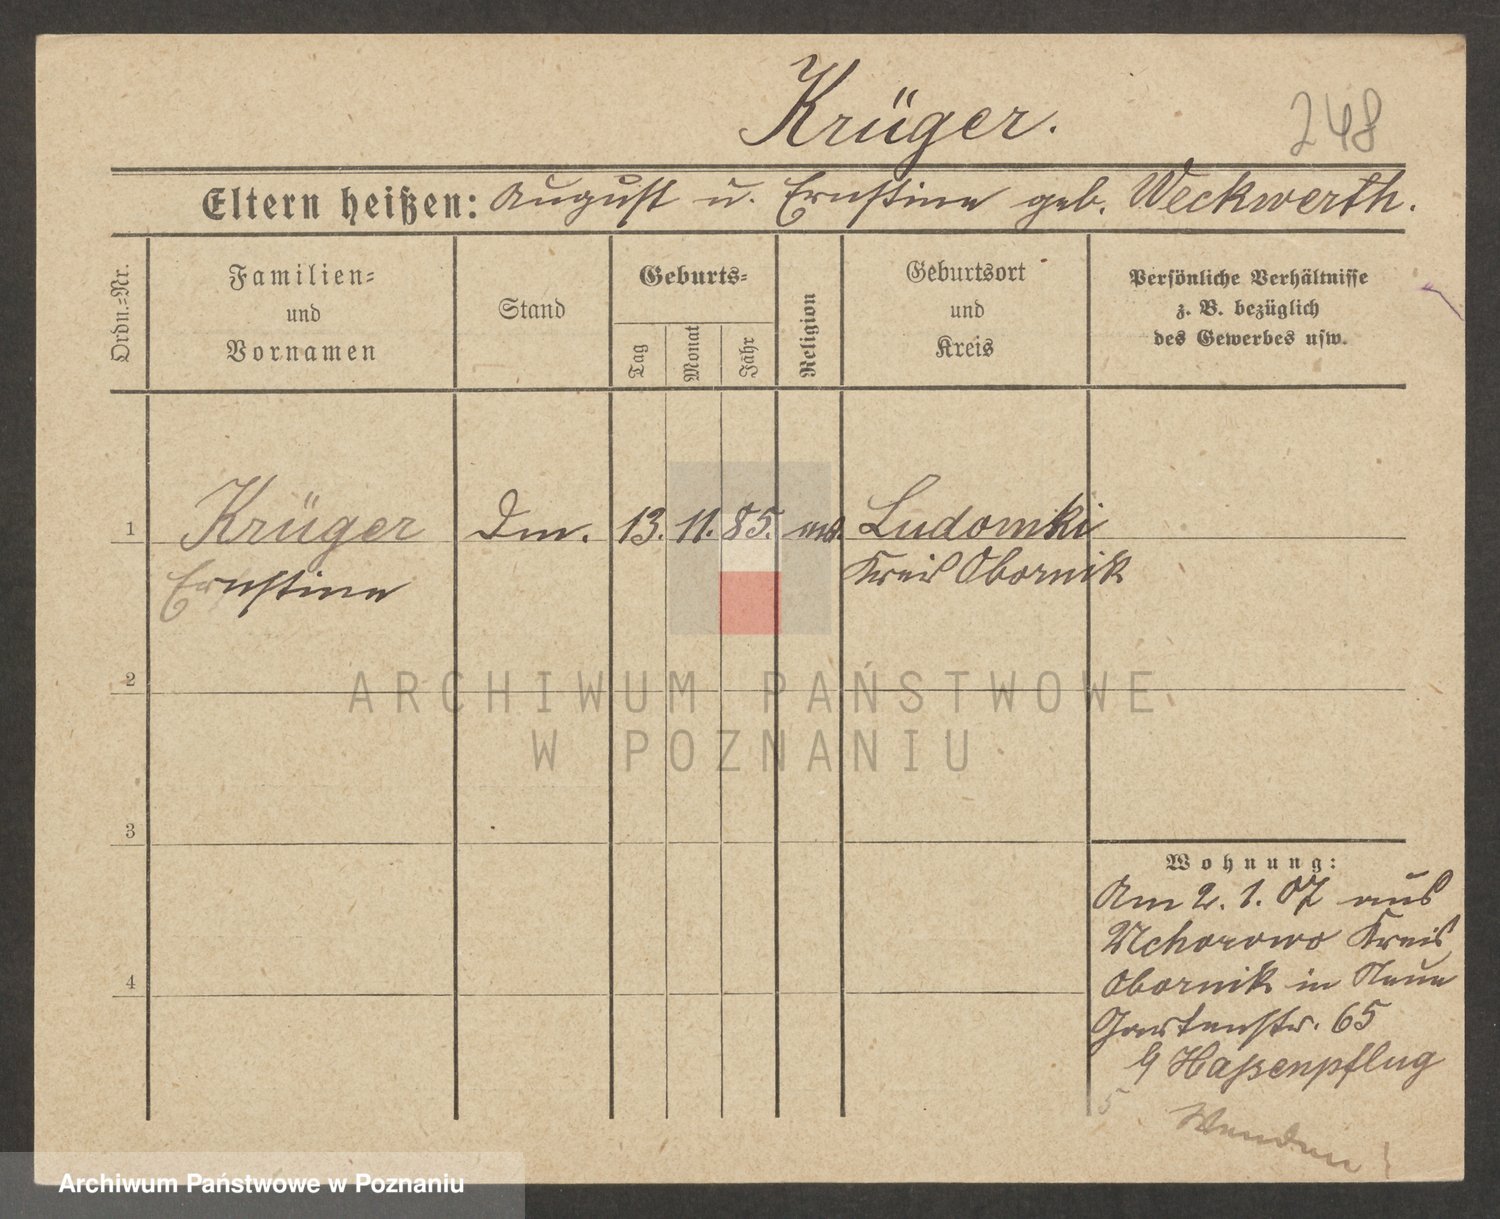 Krüger.
248
Eltern heißen: August u. Ernstine geb. Weckwerth.
Ordn.-Nr.
Familien-
und
Vornamen
Stand
Geburts-
Tag
Monat
Jahr
Religion
Geburtsort
und
Kreis
Persönliche Verhältnisse
z. B. bezüglich
des Gewerbes usw.
1 Krüger Dm. 13. 11. 85. ev. Ludomki
Ernstine Kreis Obornik
2
ARCHIWUM PAŃSTWOWE
W POZNANIU
3
Wohnung:
Am 2. 1. 07 aus
Uchorowo Kreis
4
Obornik in Neue
Gartenstr. 65
b/ Haßenpflug
Wenden!
Archiwum Państwowe w Poznaniu